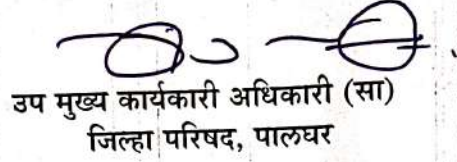 उप मुख्य कार्यकारी अधिकारी (सा)
जिल्हा परिषद, पालघर